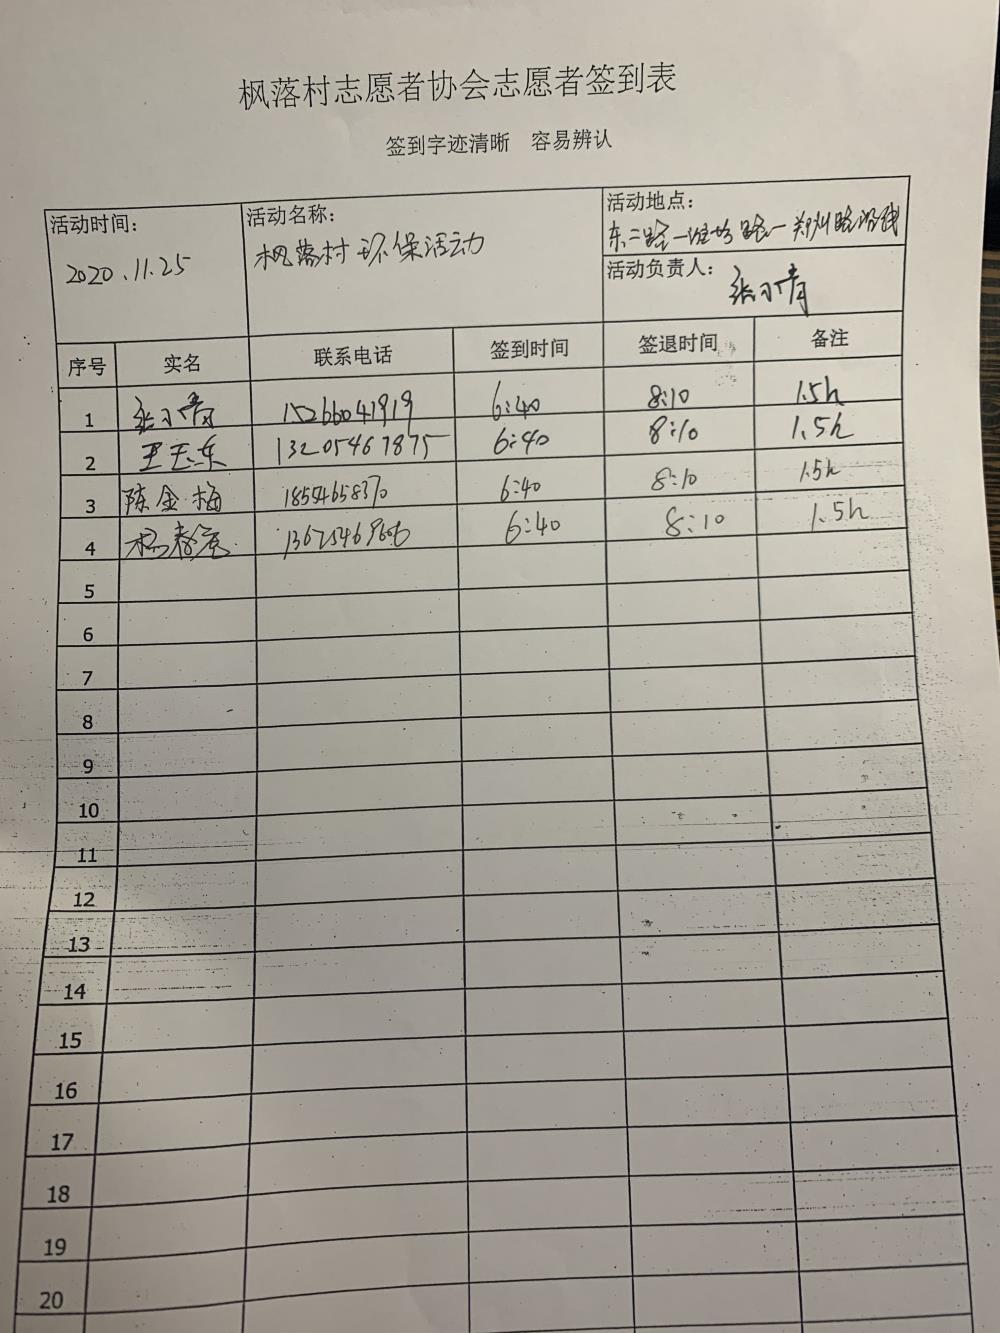 枫落村志愿者协会志愿者签到表
签到字迹清晰 容易辨认
活动时间: 2020.11.25
活动名称: 枫落村环保活动
活动地点: 东二路一潍坊路一郑州路沿线
活动负责人: 张小青
序号 实名 联系电话 签到时间 签退时间 备注
1 张小青 15266041919 6:40 8:10 1.5h
2 王玉东 13205467875 6:40 8:10 1.5h
3 陈金梅 18554658370 6:40 8:10 1.5h
4 杨 6:40 8:10 1.5h
5
6
7
8
9
10
11
12
13
14
15
16
17
18
19
20